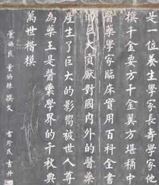 是一位養生學家長壽學家他
撰千金要方千金翼方堪稱中
醫藥學家臨床實用百科全書
巨大貢獻對國內外的醫藥
產生了巨大的影響被世人尊
為藥王是醫藥學界的千秋典
萬世楷模